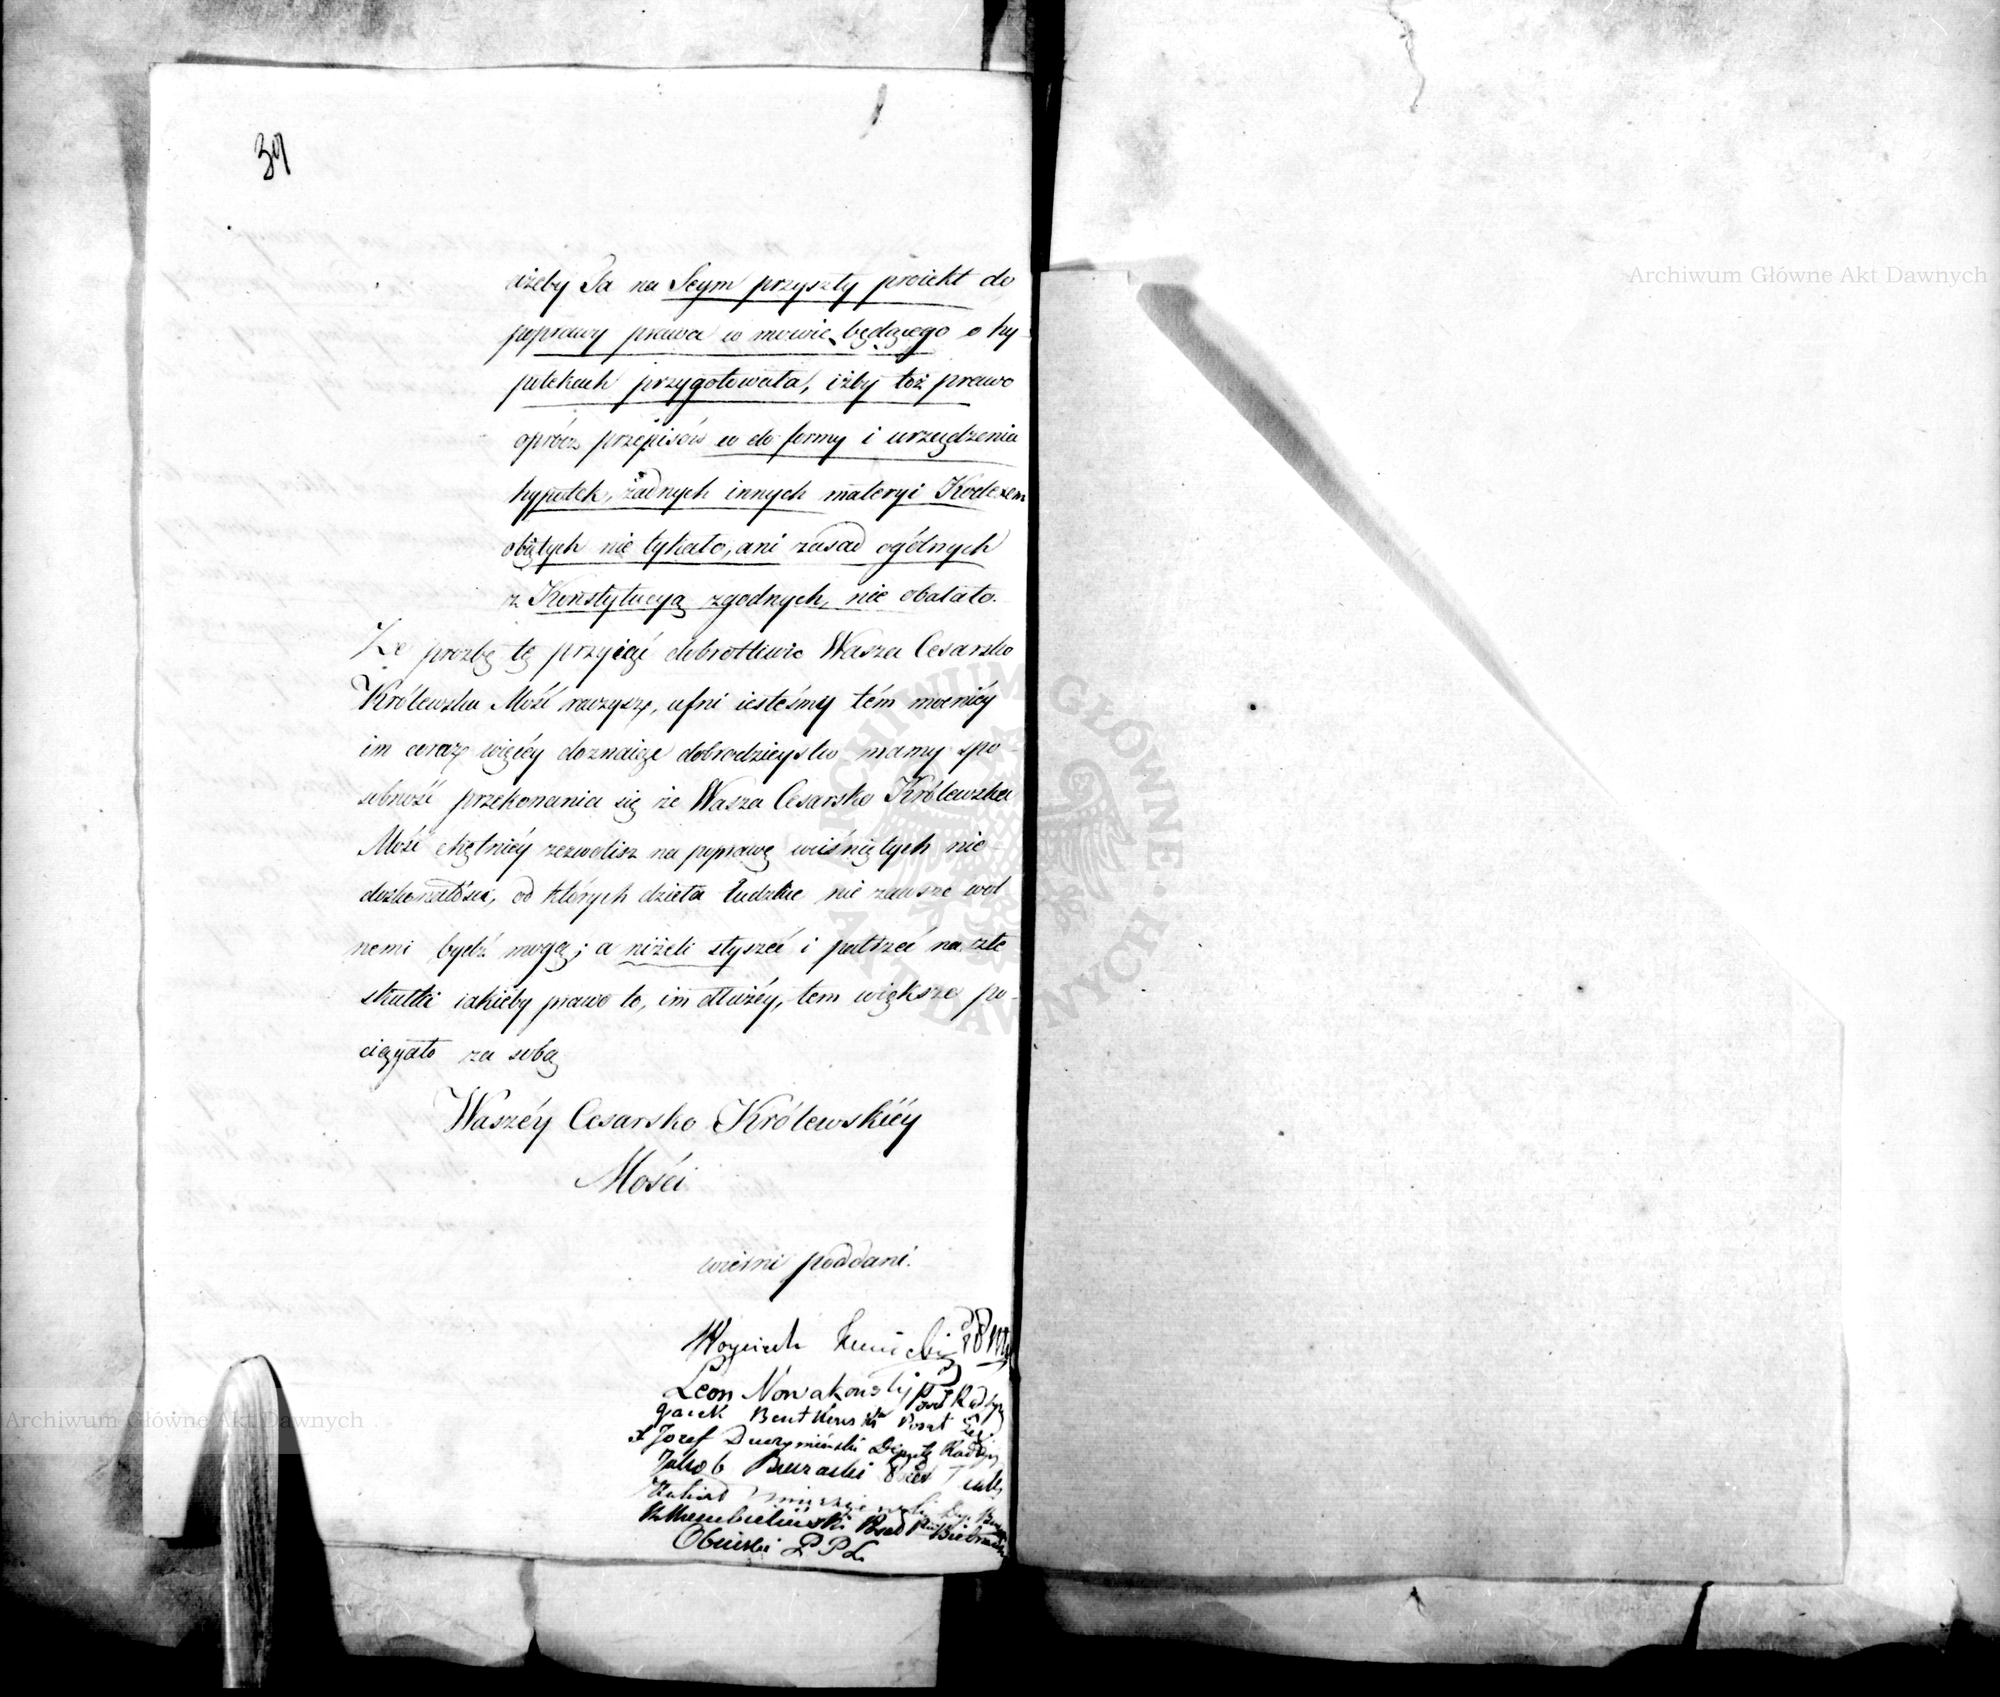 39
ażeby Ta na Seym przyszły proiekt do
poprawy prawa w mowie będącego o hy-
potekach przygotowała, iżby toż prawo
oprócz przepisów co do formy i urządzenia
hypotek, żadnych innych materyi Kodexem
obiętych nie tykało, ani zasad ogólnych
z Konstytucyą zgodnych, nie obalało.
Że prozbę tę przyiąć dobrotliwie Wasza Cesarsko
Królewska Mość raczysz, ufni iesteśmy tém mocniéy
im coraz więcéy doznaiąc dobrodzieystw mamy spo-
sobność przekonania się że Wasza Cesarsko Królewska
Mość chętniéy zezwolisz na poprawę wciśniętych nie-
doskonałości, od których dzieła ludzkie nie zawsze wol
nemi bydź mogą; a niżeli słyszeć i patrzeć na złe
skutki iakieby prawo to, im dłużéy, tem większe po-
ciągało za sobą
Waszéy Cesarsko Królewskiéy
Mości
wierni poddani.
Woyciech
Leon Nowakowski Poseł
Bentkowski Poseł
Jozef Duczymiński Deputy
Jakob Buraski Poseł
Poseł
Obniski P P Ł
Archiwum Główne Akt Dawnych
Archiwum Główne Akt Dawnych
ARCHIWUM GŁÓWNE AKT DAWNYCH